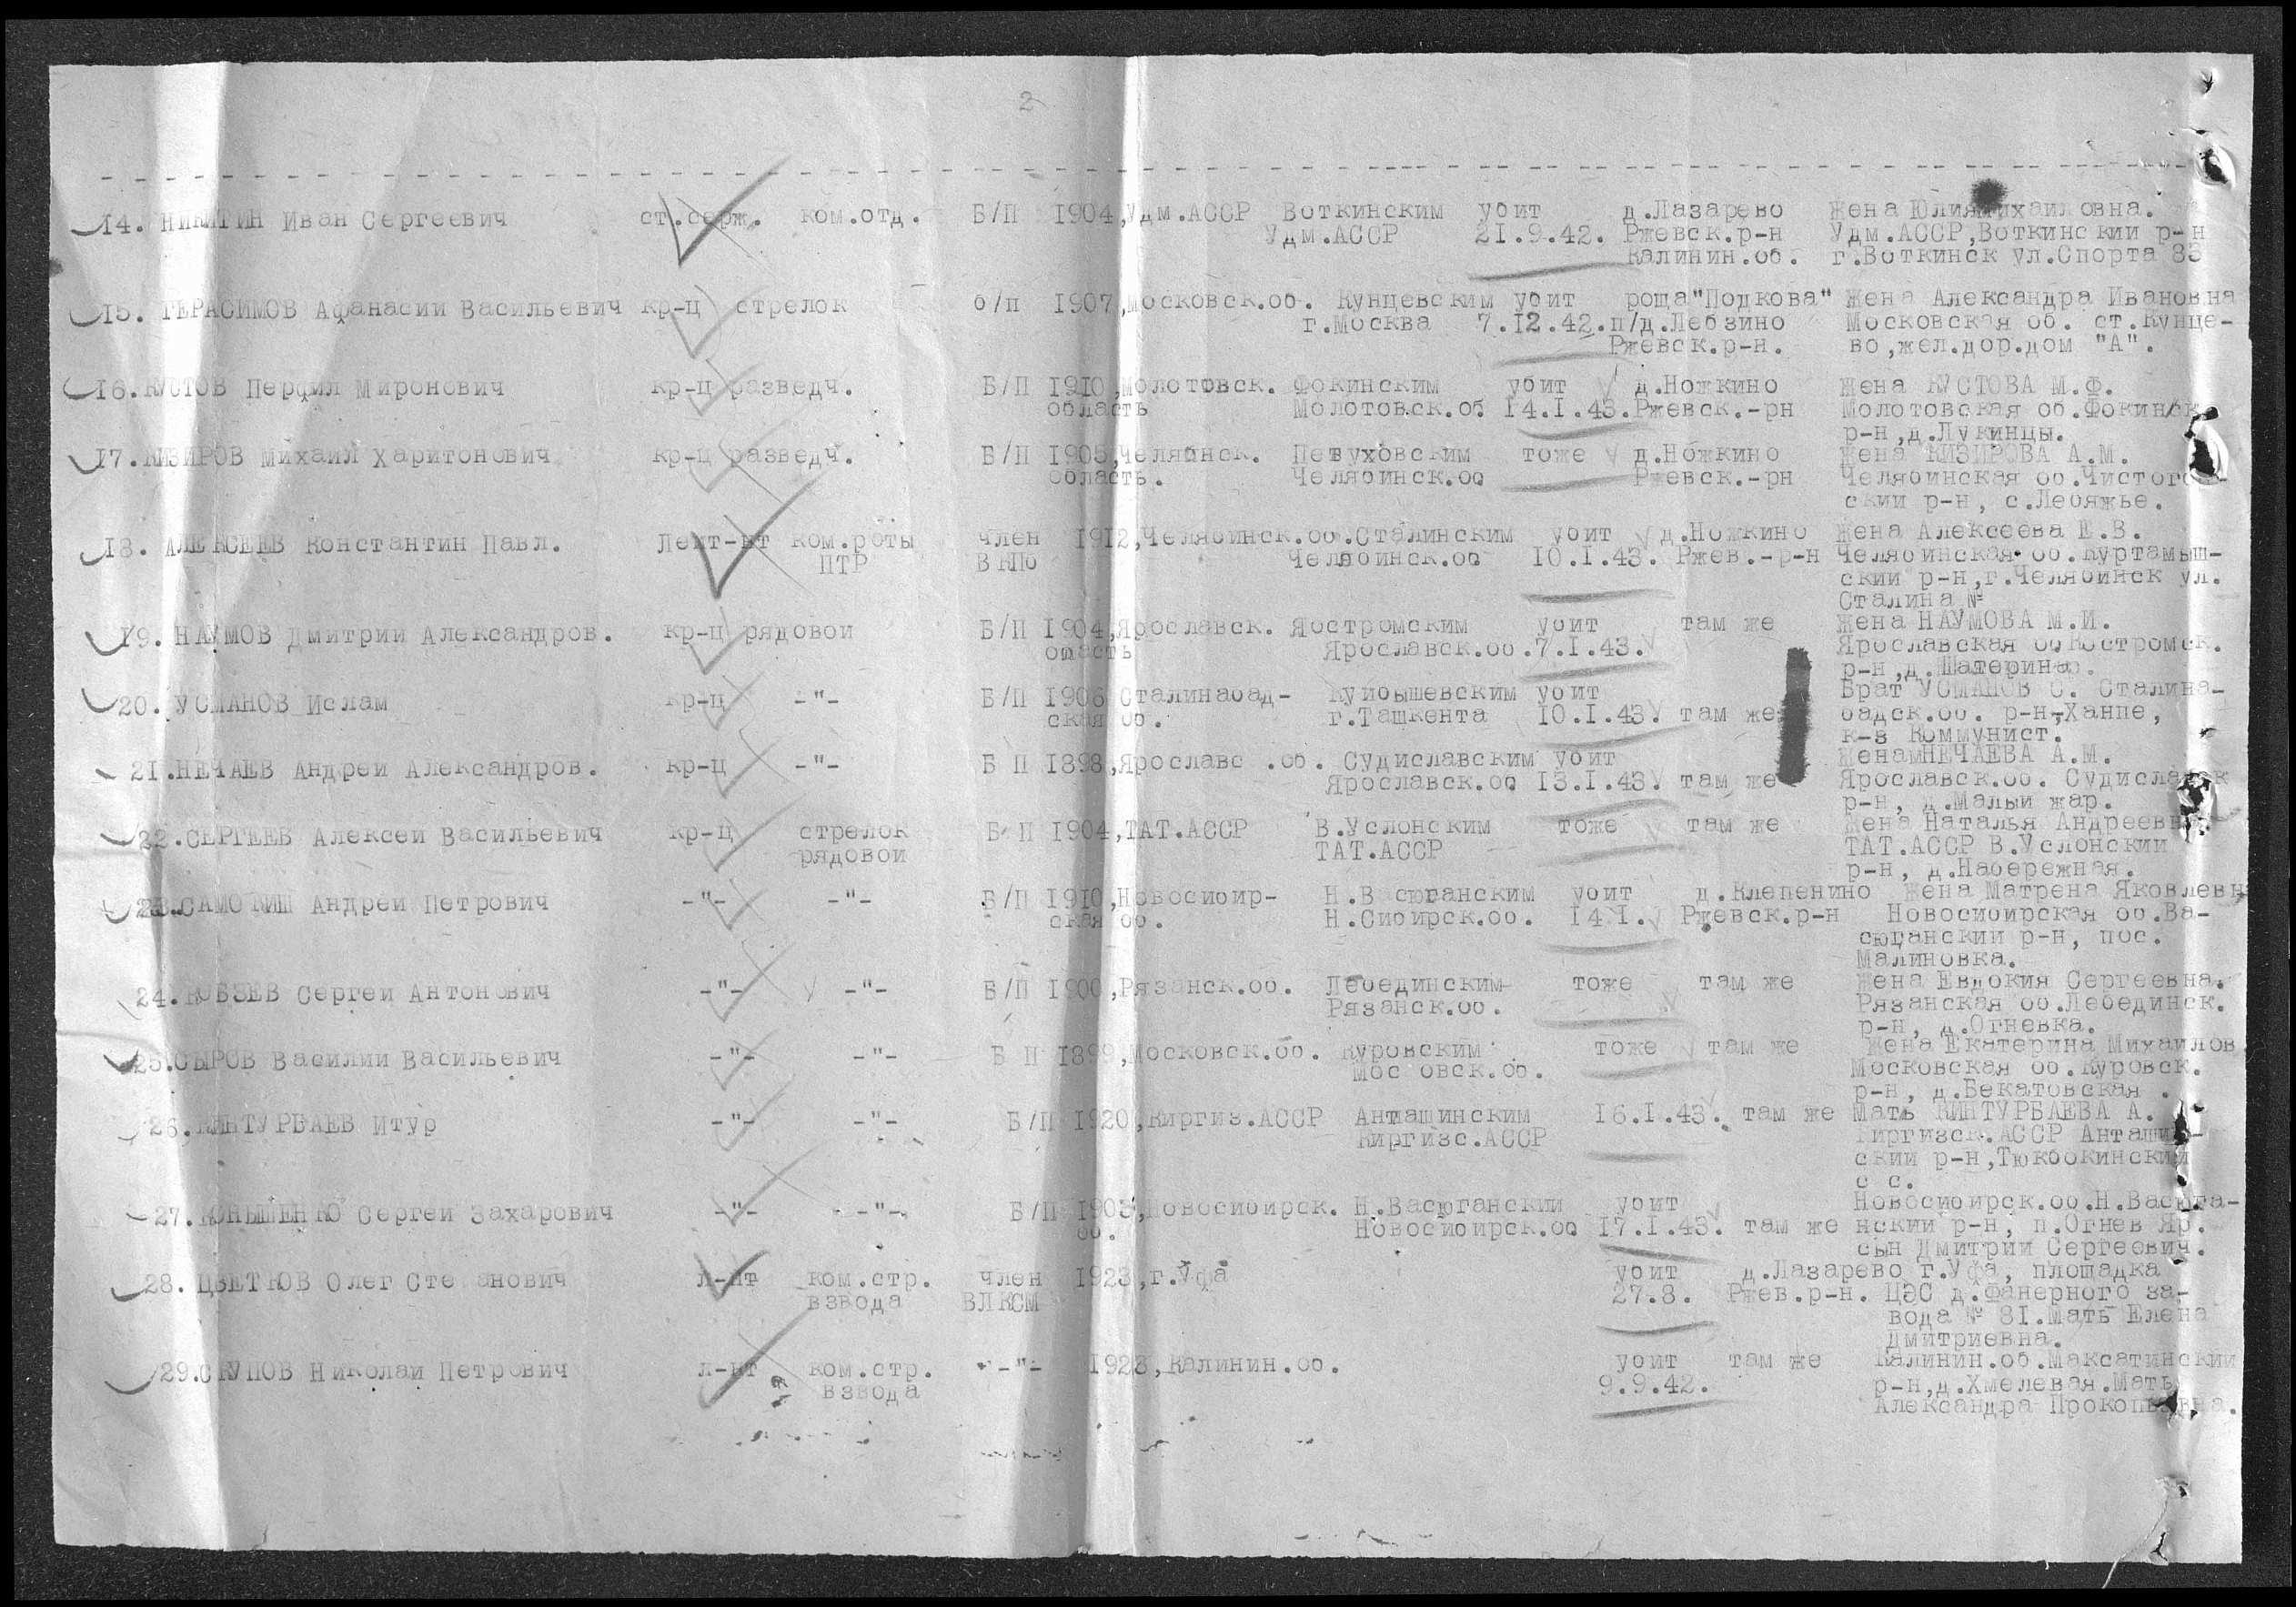 2
14. НИКИТИН Иван Сергеевич ст.серж. ком.отд. Б/П 1904,Удм.АССР Воткинским убит д.Лазарево Жена Юлия Михайловна.
Удм.АССР 21.9.42. Ржевск.р-н Удм.АССР,Воткинский р-н
Калинин.об. г.Воткинск ул.Спорта 83
15. ГЕРАСИМОВ Афанасий Васильевич кр-ц стрелок б/п 1907,Московск.об. Кунцевским убит роща"Подкова" Жена Александра Ивановна
г.Москва 7.12.42.п/д.Лебзино Московская об. ст.Кунце-
Ржевск.р-н. во,жел.дор.дом "А".
16.КУСТОВ Перфил Миронович кр-ц разведч. Б/П 1910,Молотовск. Фокинским убит д.Ножкино Жена КУСТОВА М.Ф.
область Молотовск.об 14.1.43.Ржевск.-рн Молотовская об.Фокинск.
р-н,д.Лукинцы.
17.КИЗИРОВ Михаил Харитонович кр-ц разведч. Б/П 1905,Челябнск. Петуховским тоже д.Ножкино Жена КИЗИРОВА А.М.
область. Челябинск.об Ржевск.-рн Челябинская об.Чистого-
ский р-н, с.Лебяжье.
18. АЛЕКСЕЕВ Константин Павл. Лейт-нт ком.роты член 1912,Челябинск.об.Сталинским убит д.Ножкино Жена Алексеева Е.В.
ПТР ВКПб Челябинск.об 10.1.43. Ржев.-р-н Челябинская об.Куртамыш-
ский р-н,г.Челябинск ул.
Сталина №
19. НАУМОВ Дмитрий Александров. кр-ц рядовой Б/П 1904,Ярославск. Яостромским убит там же Жена НАУМОВА М.И.
область Ярославск.об.7.1.43. Ярославская об Костромск.
р-н,д.Шатерино.
20. УСМАНОВ Ислам кр-ц -"- Б/П 1906 Сталинабад- Куйбышевским убит Брат УСМАНОВ С. Сталина-
ская об. г.Ташкента 10.1.43. там же бадск.об. р-н-Ханпе,
к-з Коммунист.
21.НЕЧАЕВ Андрей Александров. кр-ц -"- Б П 1898,Ярославс .об. Судиславским убит ЖенамНЕЧАЕВА А.М.
Ярославск.об 13.1.43. там же Ярославск.об. Судиславск
р-н, д.Малый жар.
22.СЕРГЕЕВ Алексей Васильевич кр-ц стрелок Б П 1904,ТАТ.АССР В.Услонским тоже там же Жена Наталья Андреевна
рядовой ТАТ.АССР ТАТ.АССР В.Услонский
р-н, д.Набережная.
23.САМОКИШ Андрей Петрович -"- -"- Б/П 1910,Новосибир- Н.Васюганским убит д.Клепенино Жена Матрена Яковлевн
ская об. Н.Сибирск.об. 14.1. Ржевск.р-н Новосибирская об.Ва-
сюганский р-н, пос.
Малиновка.
24.КОБЗЕВ Сергей Антонович -"- -"- Б/П 1900,Рязанск.об. Лебединским тоже там же Жена Евдокия Сергеевна.
Рязанск.об. Рязанская об.Лебединск.
р-н, д.Огневка.
25.СЫРОВ Василий Васильевич -"- -"- Б П 1899,Московск.об. Куровским тоже там же Жена Екатерина Михайлов
Мос овск.об. Московская об.Куровск.
р-н, д.Бекатовская .
26.КИНТУРБАЕВ Итур -"- -"- Б/П 1920,Киргиз.АССР Анташинским 16.1.43. там же Мать КИНТУРБАЕВА А.
Киргизс.АССР Киргизск.АССР Анташин-
ский р-н,Тюкбокинский
с с.
27.КОНЫШЕНКО Сергей Захарович -"- -"- Б/П 1905,Новосибирск. Н.Васюганский убит Новосибирск.об.Н.Васюга-
об. Новосибирск.об 17.1.43. там же нский р-н, п.Огнев Яр.
сын Дмитрий Сергеевич.
28. ЦВЕТКОВ Олег Сте анович л-нт ком.стр. член 1923,г.Уфа убит д.Лазарево г.Уфа, площадка
взвода ВЛКСМ 27.8. Ржев.р-н. ЦЭС д.Фанерного за-
вода № 81.Мать Елена
Дмитриевна.
29.СКУПОВ Николай Петрович л-нт ком.стр. -"- 1923,Калинин.об. убит там же Калинин.об.Максатинский
взвода 9.9.42. р-н,д.Хмелевая.Мать
Александра Прокопьевна.